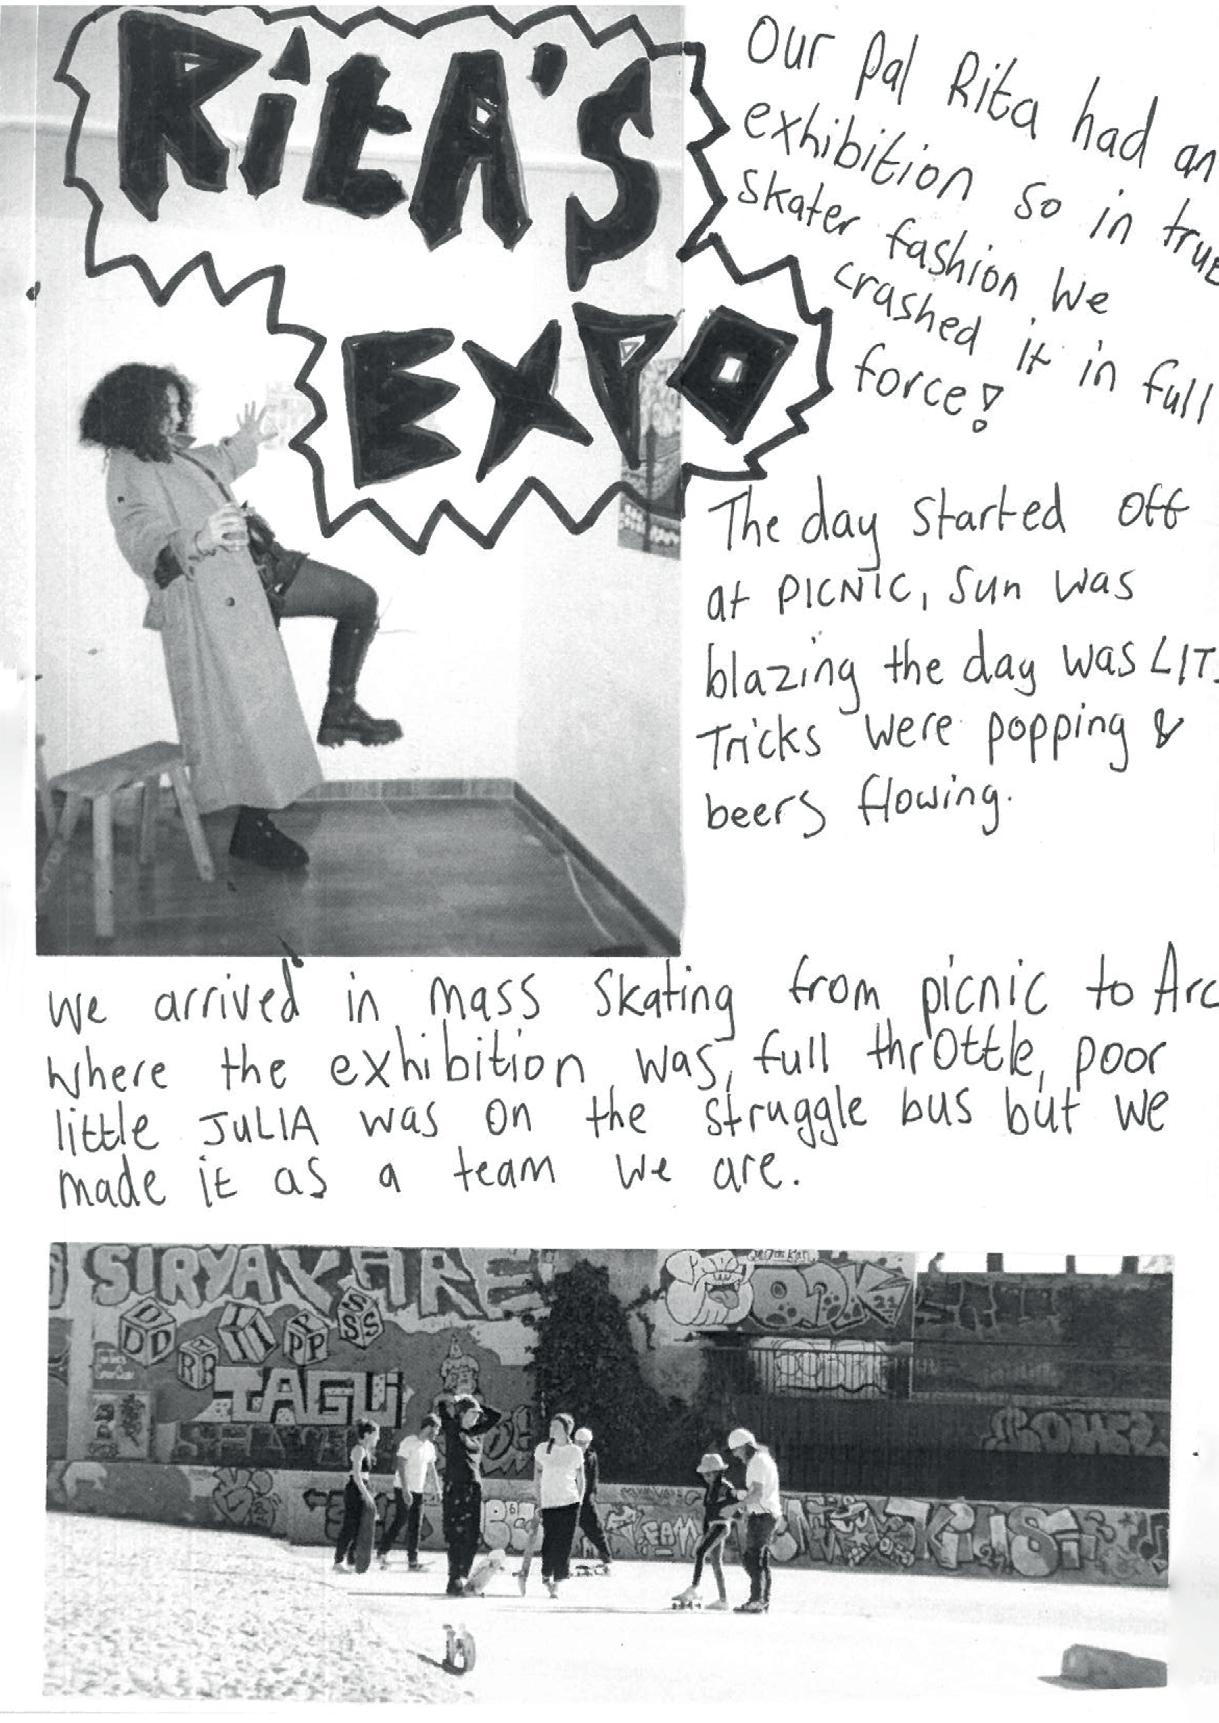 RitA's
EXPO
Our pal Rita had an
exhibition so in true
skater fashion we
crashed it in full
force!
The day started off
at PICNIC, sun was
blazing the day was LIT.
Tricks were popping &
beers flowing.
we arrived in mass skating from picnic to Arc
where the exhibition was, full throttle, poor
little JULIA was on the struggle bus but we
made it as a team we are.
SIRYA
TAGLi